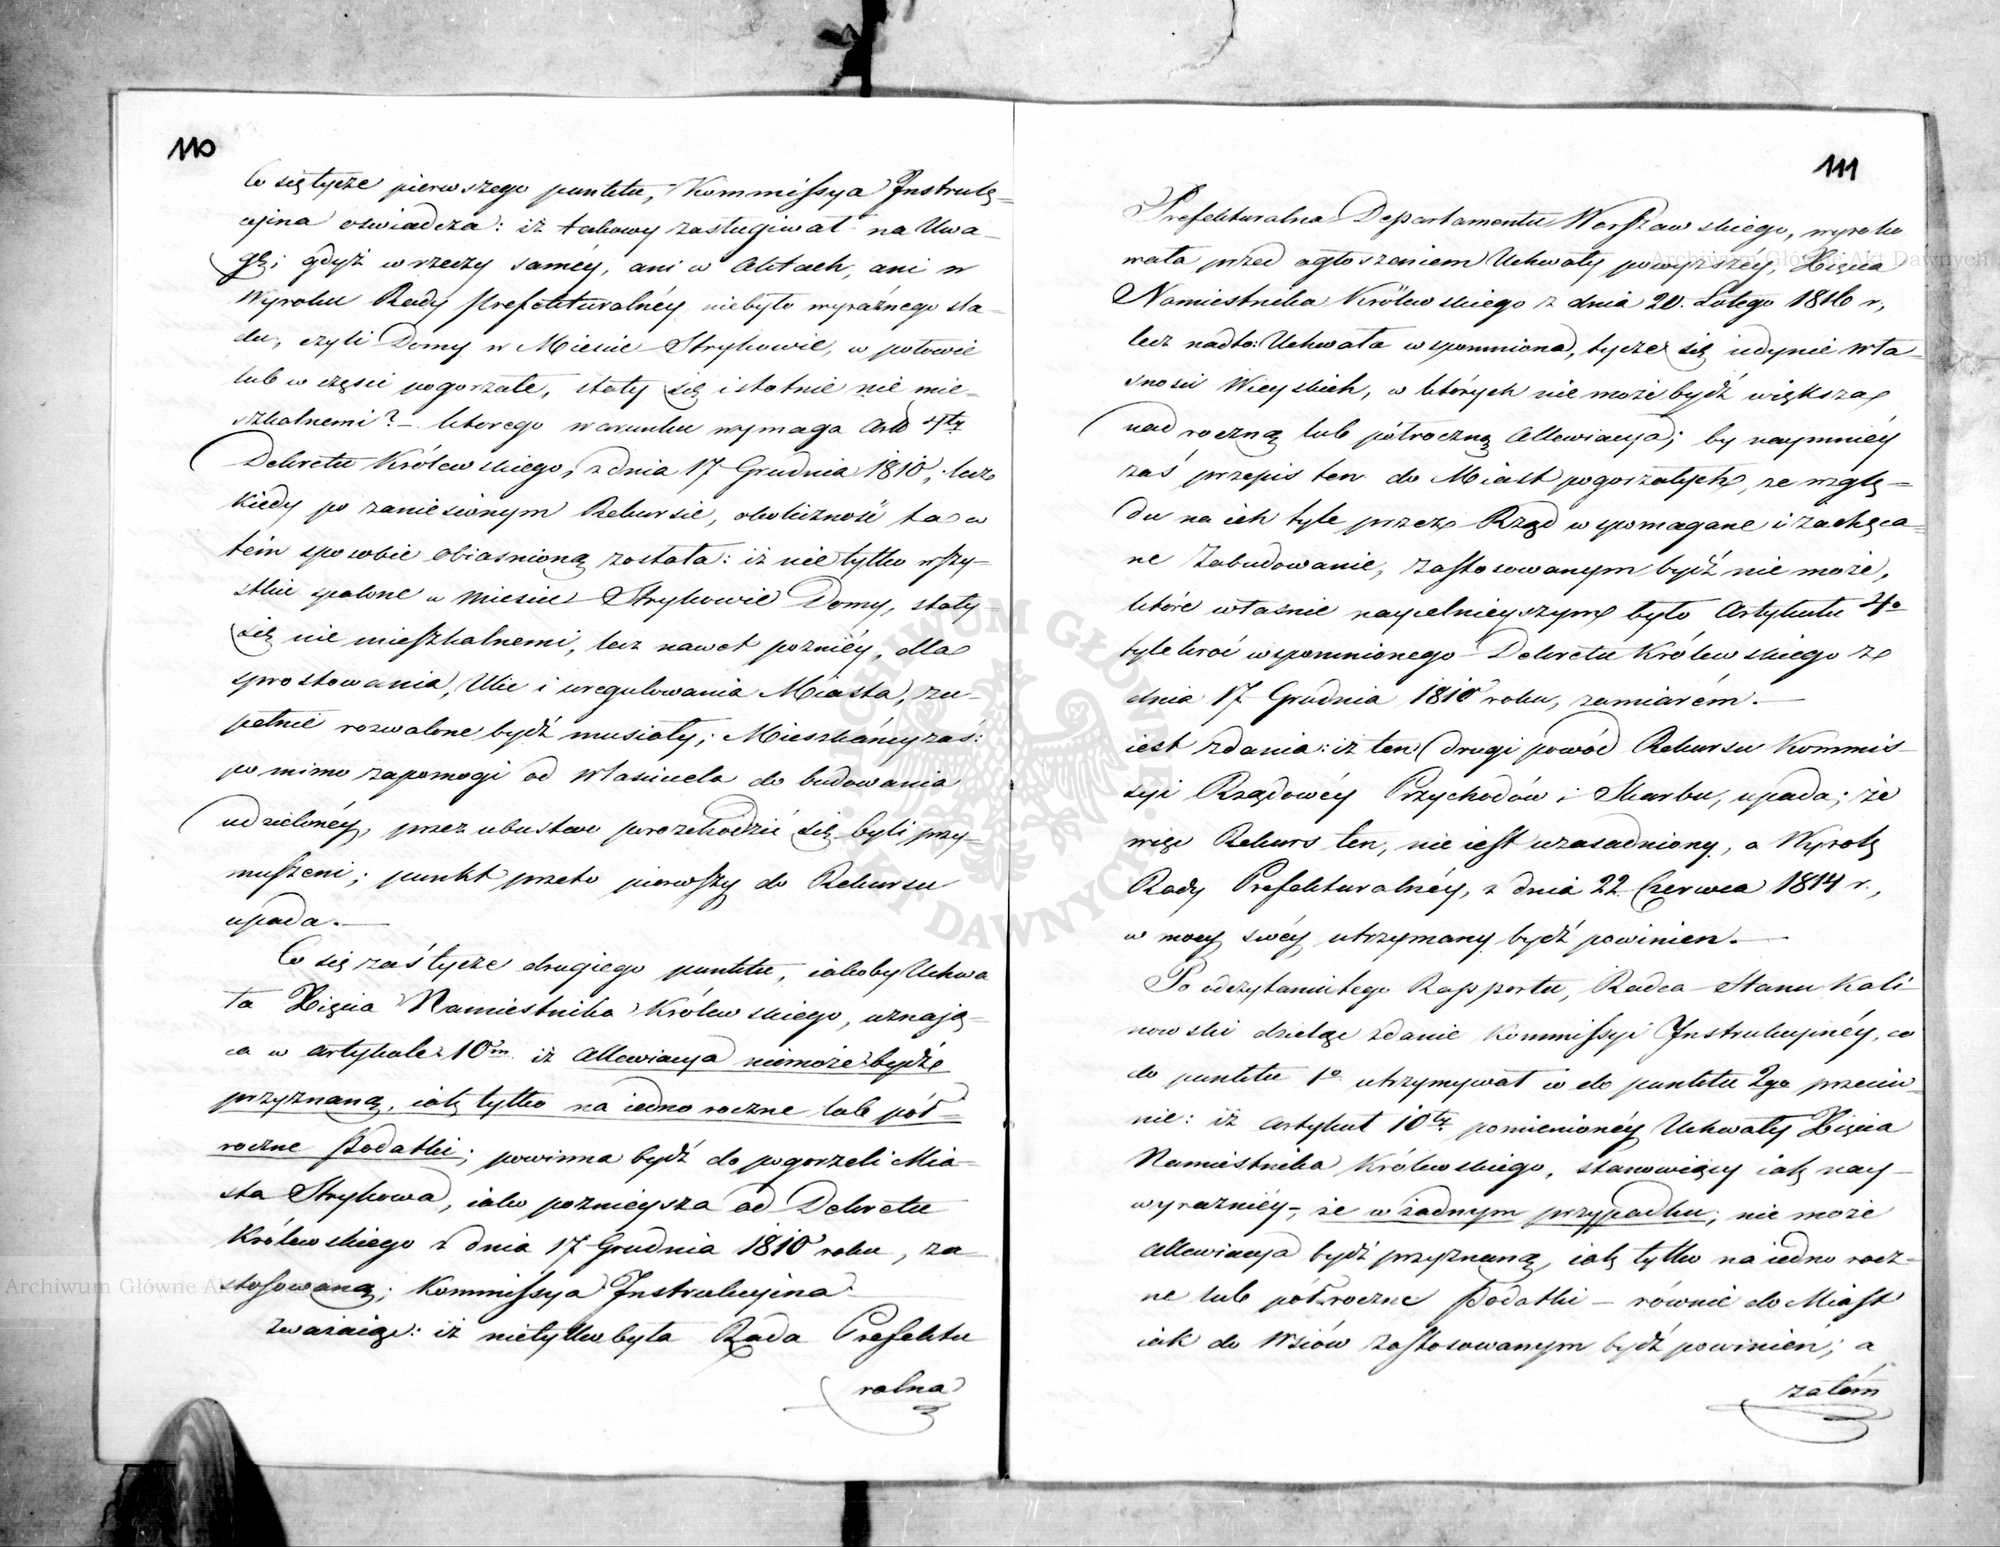 110
Co się tycze pierwszego punktu, Kommissya Instruk-
cyina oświadcza: iż takowy zasługiwał na Uwa-
gę; gdyż w rzeczy saméy, ani w Aktach, ani w
Wyroku Rady Prefekturalnéy niebyło wyraźnego śla-
du, czyli Domy w Mieście Strykowie, w połowie
lub w części pogorzałe, stały się istotnie nie mie-
szkalnemi? – którego warunku wymaga Art 4ty
Dekretu Królewskiego, z dnia 17 Grudnia 1810, lecz
kiedy po zaniesionym Rekursie, okoliczność ta w
tém sposobie obiasnioną została: iż nie tylko wszy-
stkie spalone w Mieście Strykowie Domy, stały
się nie mieszkalnemi, lecz nawet poznićy, dla
sprostowania, Ulic i uregulowania Miasta, zu-
pełnie rozwalone bydź musiały; Mieszkańcy zaś:
pomimo zapomogi od Właściciela do budowania
udzielonéy, przez ubustwo porozchodzić się byli przy-
muszeni; punkt przeto pierwszy do Rekursu
upada. —
Co się zaś tycze drugiego punktu, iakoby Uchwa
ła Xięcia Namiestnika Królewskiego, uznają-
ca w artykule 10m. iż Allewiacya niemoże bydź
przyznaną, iak tylko na iedno roczne lub pół-
roczne Podatki; powinna bydź do pogorzeli Mia-
sta Strykowa, iako poznieysza od Dekretu
Królewskiego z dnia 17 Grudnia 1810 roku, za-
stosowaną; Kommissya Instrukcyina
zważaiąc: iż nietylko była Rada Prefektu
ralna
111
Prefekturalna Departamentu Warszawskiego, wyroko
wała przed ogłoszeniem Uchwały powyższéy, Xięcia
Namiestnika Królewskiego z dnia 20. Lutego 1816 r,
lecz nadto: Uchwała wspomniona, tycze się iedynie wła-
sności Wieyskich, w których nie może bydź większa
nad roczną lub półroczną Allewiacya; by naymniéy
zaś przepis ten do Miast pogorzałych, ze wzglę-
du na ich tyle przez Rząd wspomagane i zachęca-
ne Zabudowanie, zastosowanym bydź nie może,
które właśnie naycelnieyszym było Artykułu 4o
tylekroć wspomnionego Dekretu Królewskiego z
dnia 17 Grudnia 1810 roku, zamiarém. —
iest zdania: iż ten drugi powód Rekursu Kommis-
syi Rządowéy Przychodów i Skarbu, upada; że
więc Rekurs ten, nie iest uzasadniony, a Wyrok
Rady Prefekturalnéy, z dnia 22 Czerwca 1814 r.,
w mocy swéy utrzymany bydź powinien. —
Po odczytaniu tego Rapportu, Radca Stanu Kali
nowski dzieląc zdanie Kommissyi Instrukcyinéy, co
do punktu 1o utrzymywał co do punktu 2go przeciw-
nie: iż Artykuł 10ty pomienionéy Uchwały Xięcia
Namiestnika Królewskiego, stanowiący iak nay-
wyrazniéy, że w żadnym przypadku, nie może
Allewiacya bydź przyznaną, iak tylko na iedno rocz-
ne lub półroczne Podatki – równie do Miast
iak do Wsiów zastosowanym bydź powinien; a
zatém